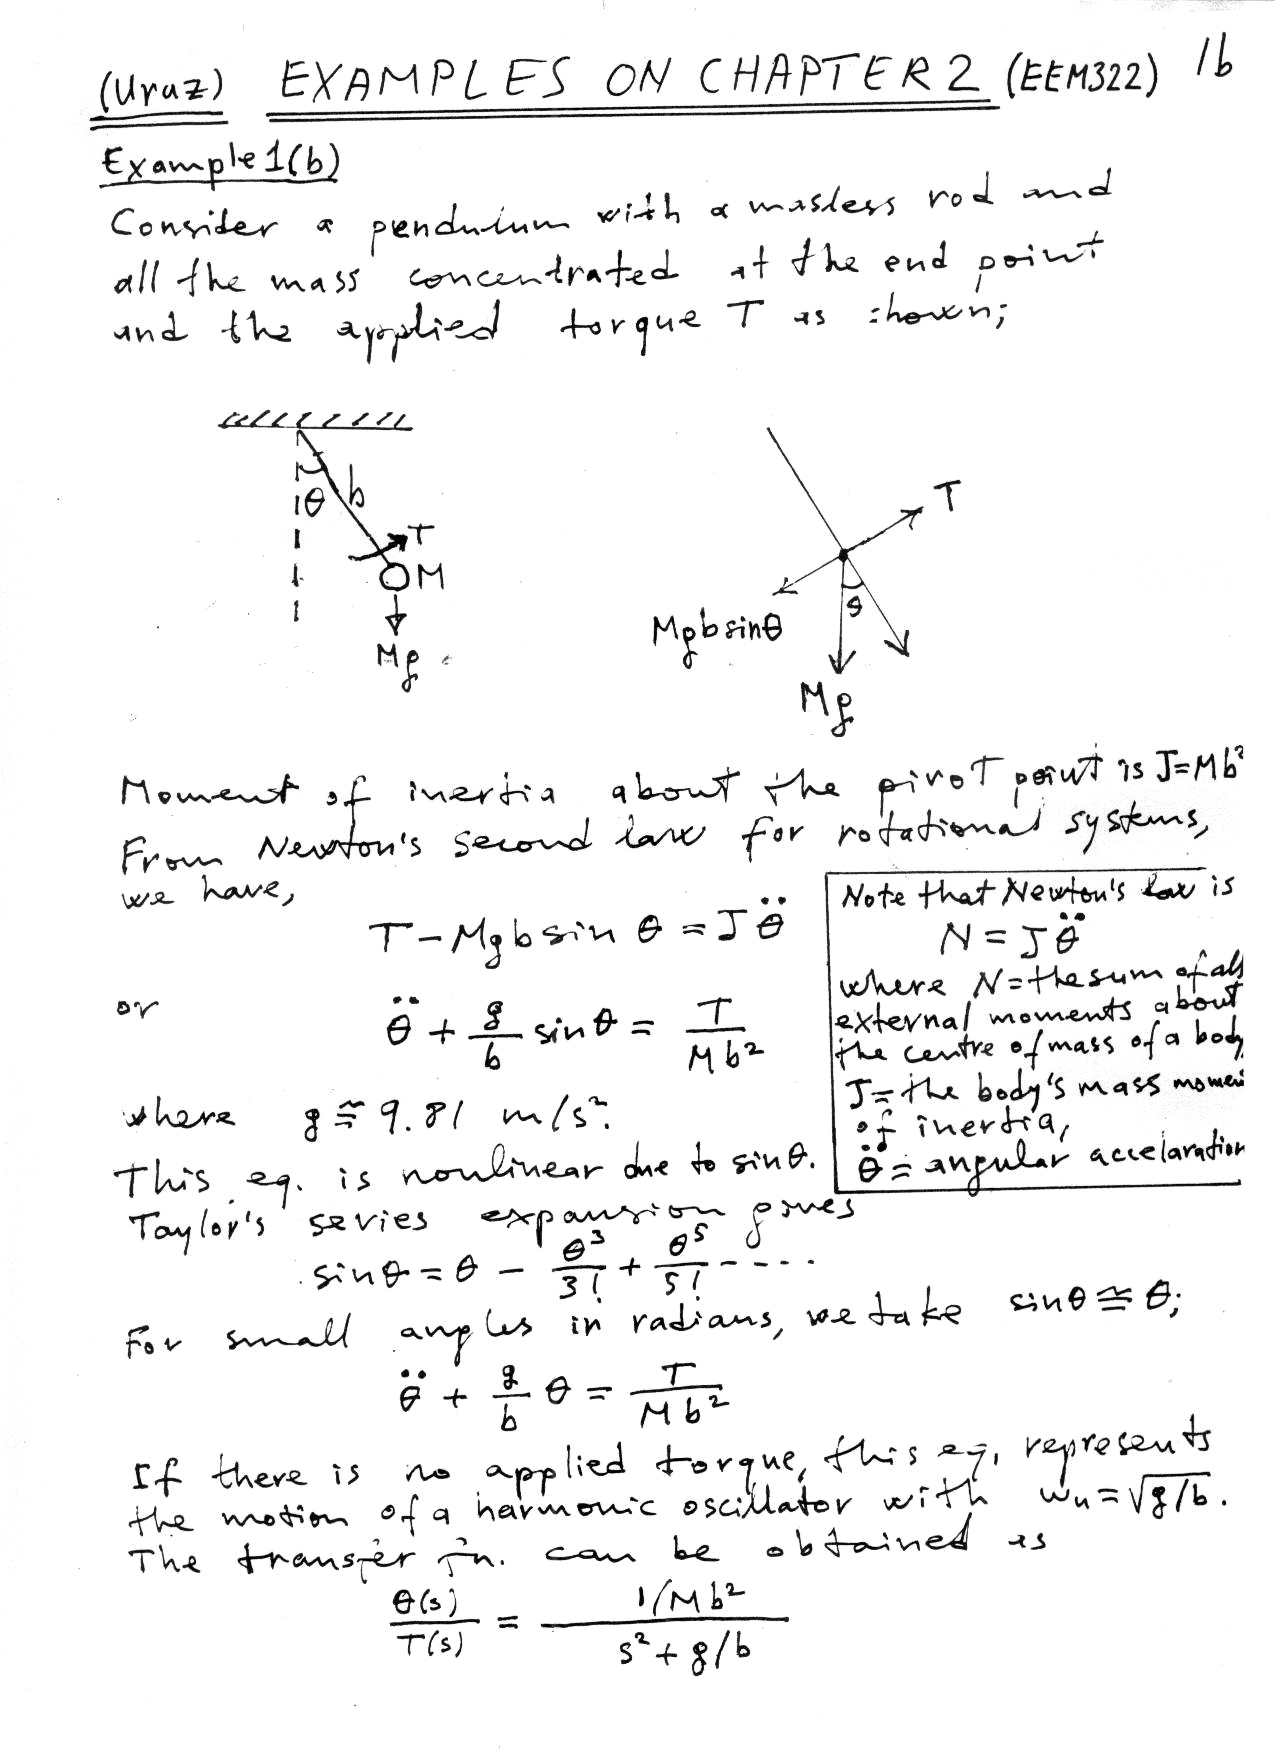 (Uraz) EXAMPLES ON CHAPTER 2 (EEM322) 1b
Example 1(b)
Consider a pendulum with a masless rod and
all the mass concentrated at the end point
and the applied torque T as shown;
θ b
T
M
Mg
T
Mgbsinθ
θ
Mg
Moment of inertia about the pivot point is J=Mb²
From Newton's second law for rotational systems,
we have,
T - Mgb sin θ = J θ̈
or
θ̈ + g/b sin θ = T/Mb²
where g ≅ 9.81 m/s².
This eq. is nonlinear due to sinθ.
Note that Newton's law is
N = J θ̈
where N = the sum of all
external moments about
the centre of mass of a body
J = the body's mass momen
of inertia,
θ̈ = angular accelaration
Taylor's series expansion gives
sinθ = θ - θ³/3! + θ⁵/5! - - - - ·
For small angles in radians, we take sinθ ≅ θ;
θ̈ + g/b θ = T/Mb²
If there is no applied torque, this eq. represents
the motion of a harmonic oscillator with wn = √g/b.
The transfer fn. can be obtained as
θ(s)/T(s) = 1/Mb² / s² + g/b